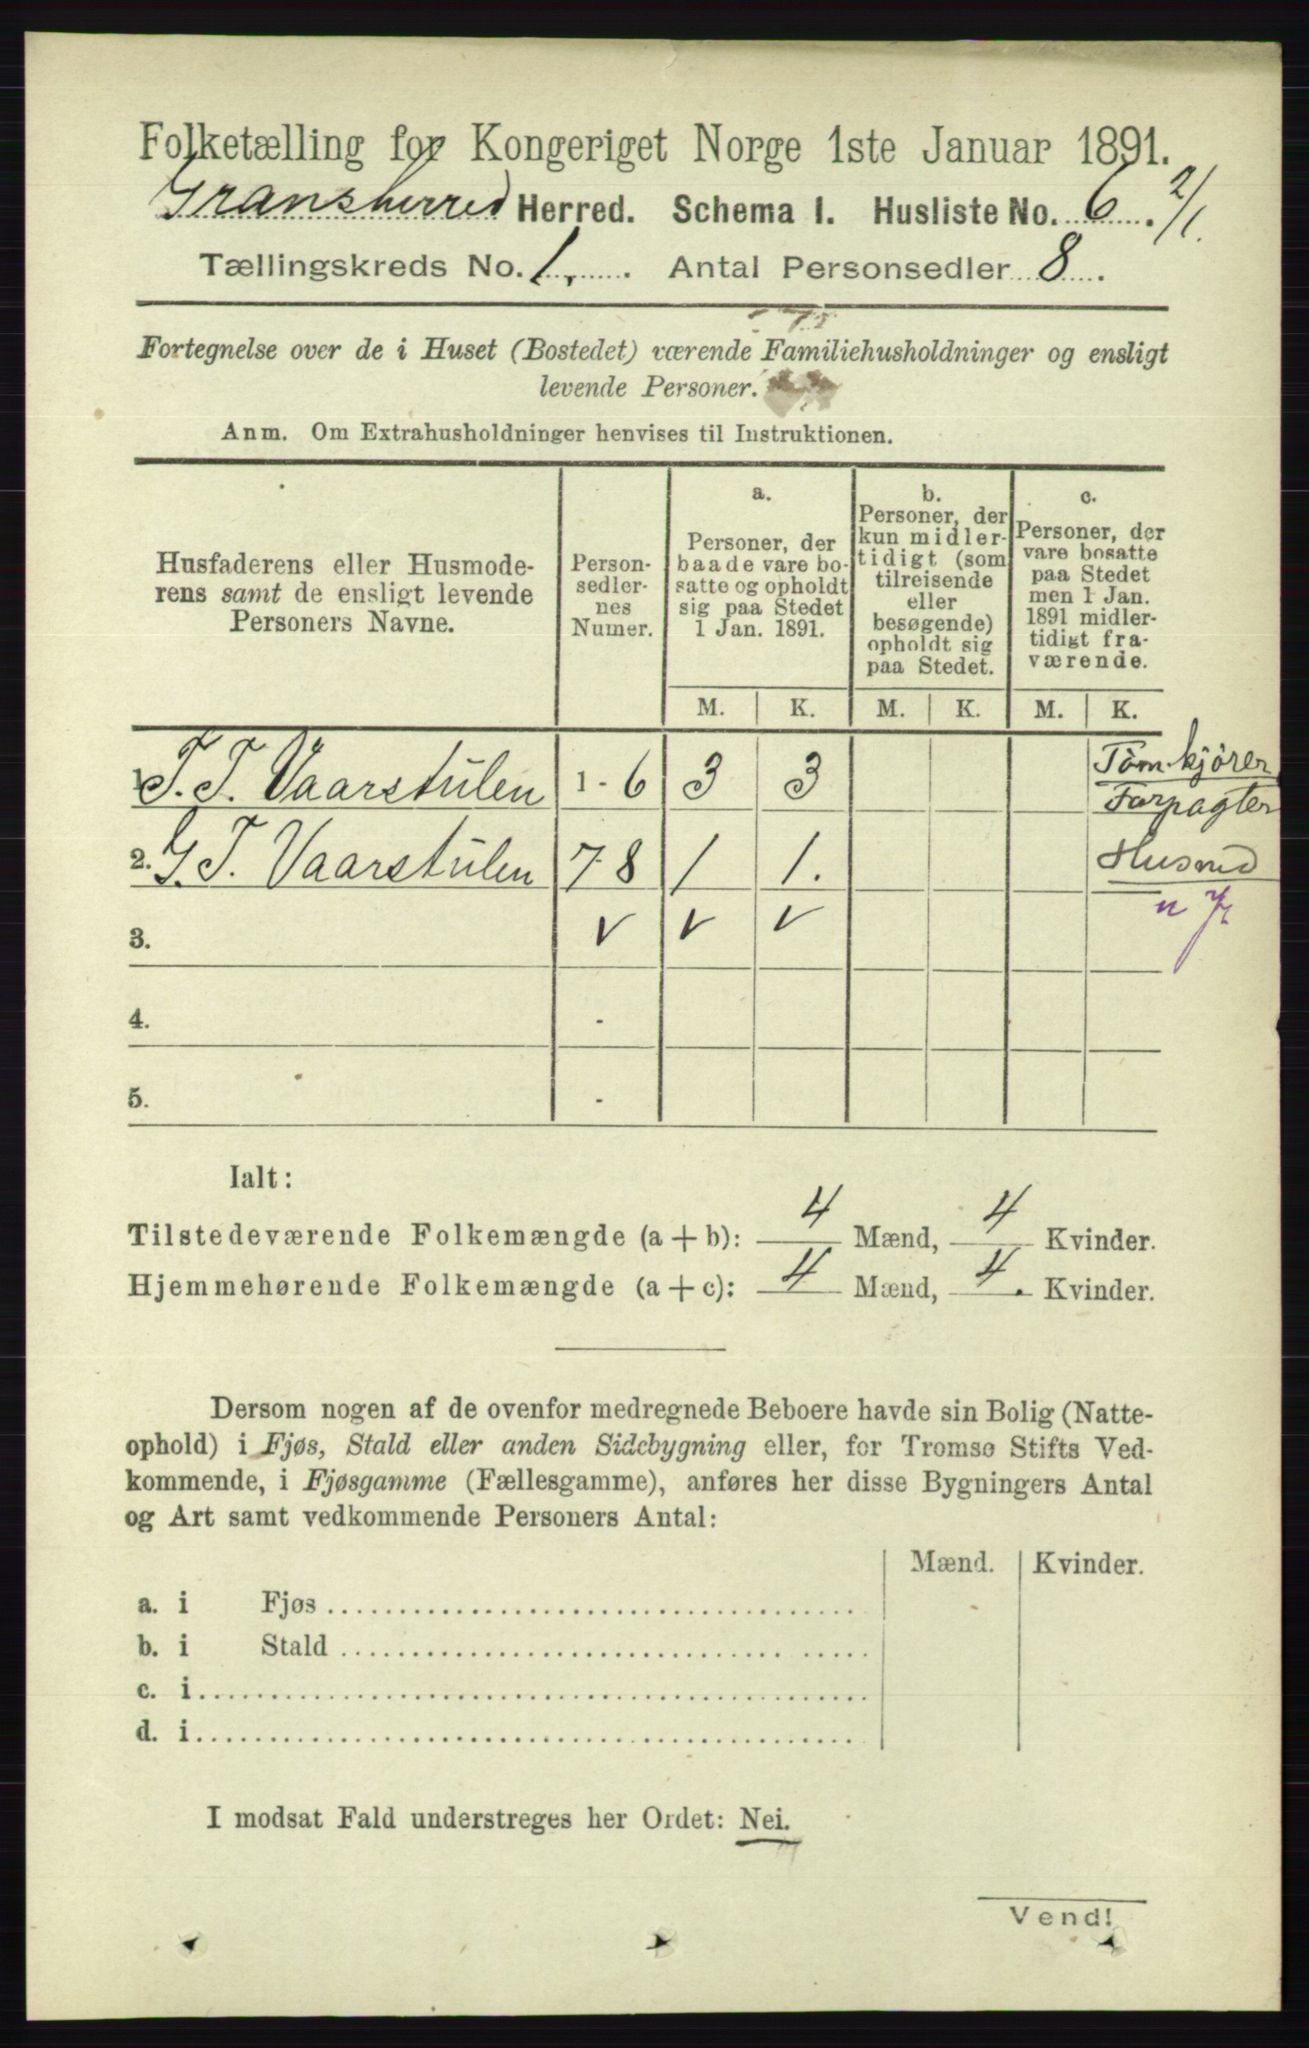 Folketælling for Kongeriget Norge 1ste Januar 1891.
Gransherred Herred. Schema 1. Husliste No. 6. 2/1.
Tællingskreds No. 1. Antal Personsedler 8.
Fortegnelse over de i Huset (Bostedet) værende Familiehusholdninger og ensligt
levende Personer.
Anm. Om Extrahusholdninger henvises til Instruktionen.
Husfaderens eller Husmode-
rens samt de ensligt levende
Personers Navne.
Person-
sedler-
nes
Numer.
a.
Personer, der
baade vare bo-
satte og opholdt
sig paa Stedet
1 Jan. 1891.
b.
Personer, der
kun midler-
tidigt (som
tilreisende
eller
besøgende)
opholdt sig
paa Stedet.
c.
Personer, der
vare bosatte
paa Stedet
men 1 Jan.
1891 midler-
tidigt fra-
værende.
M. K. M. K. M. K.
1. T. T. Vaarstulen 1 - 6 3 3 Töm.kjörer
Forpagter
2. G. T. Vaarstulen 7 - 8 1 1. Husmd
3. v v v
4. -
5. -
Ialt:
Tilstedeværende Folkemængde (a + b): 4 Mænd, 4 Kvinder.
Hjemmehørende Folkemængde (a + c): 4 Mænd, 4. Kvinder.
Dersom nogen af de ovenfor medregnede Beboere havde sin Bolig (Natte-
ophold) i Fjøs, Stald eller anden Sidebygning eller, for Tromsø Stifts Ved-
kommende, i Fjøsgamme (Fællesgamme), anføres her disse Bygningers Antal
og Art samt vedkommende Personers Antal:
Mænd. Kvinder.
a. i Fjøs
b. i Stald
c. i
d. i
I modsat Fald understreges her Ordet: Nei.
Vend!